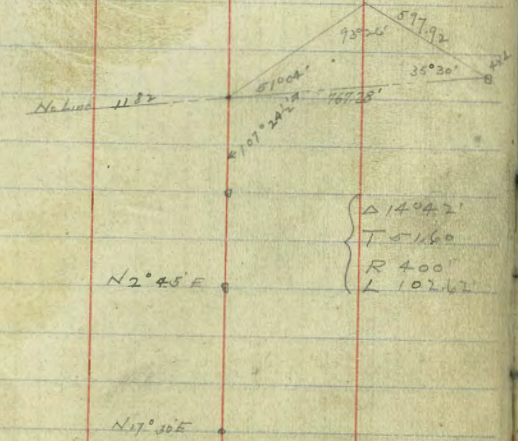 597.92
93°26'
51°04'
35°30'
No Line 1182
767.28'
107°24½'
Δ 14°42'
T 51.60
R 400'
L 102.62'
N2°45'E
N17°30'E